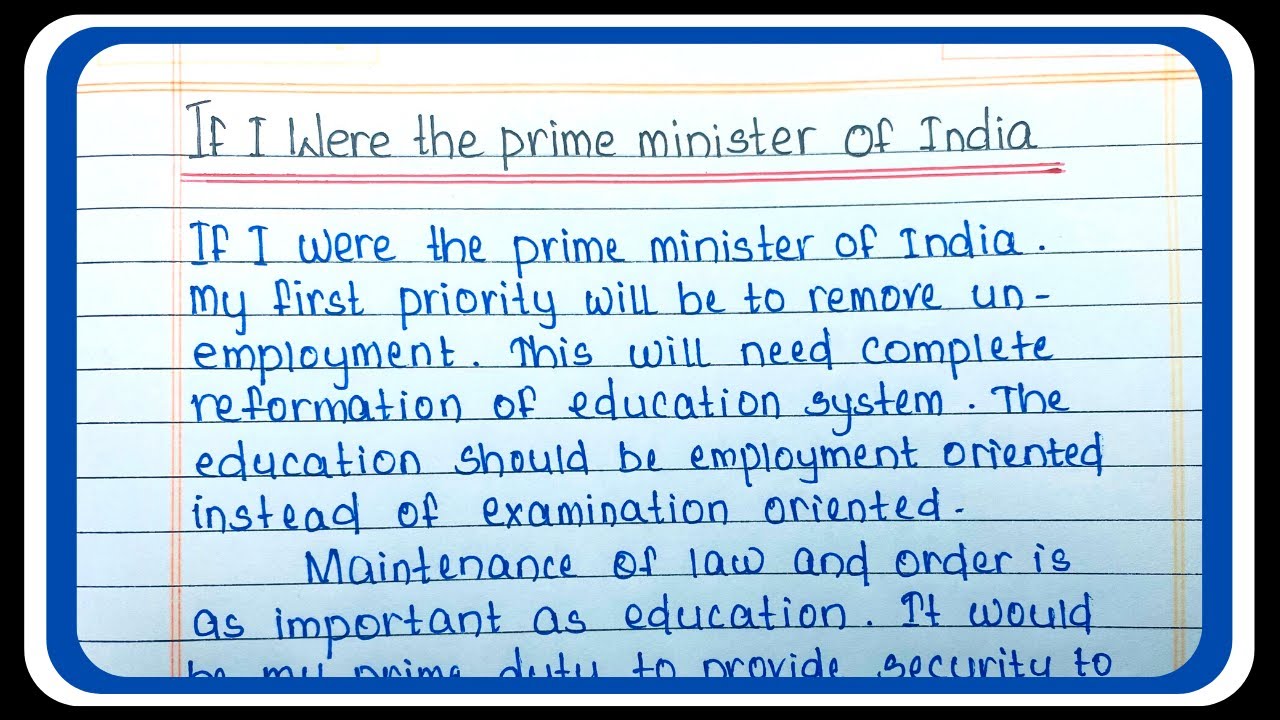 If I Were the prime minister of India
If I were the prime minister of India.
my first priority will be to remove un-
employment. This will need complete
reformation of education system. The
education should be employment oriented
instead of examination oriented.
Maintenance of law and order is
as important as education. It would
be my prime duty to provide security to